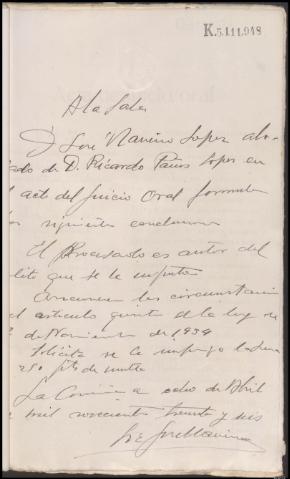 K.5.111.948
A la Sala
D José Mariño Lopez abo-
gado de D. Ricardo Pais Lopez en
el acto del Juicio Oral formula
las siguientes conclusiones
El Procesado es autor del
delito que se le imputa
Concurren las circunstancias
del articulo quinto de la ley de
de Noviembre de 1934
Solicita se le imponga la
250 pts de multa
La Coruña a ocho de Abril
mil novecientos treinta y seis